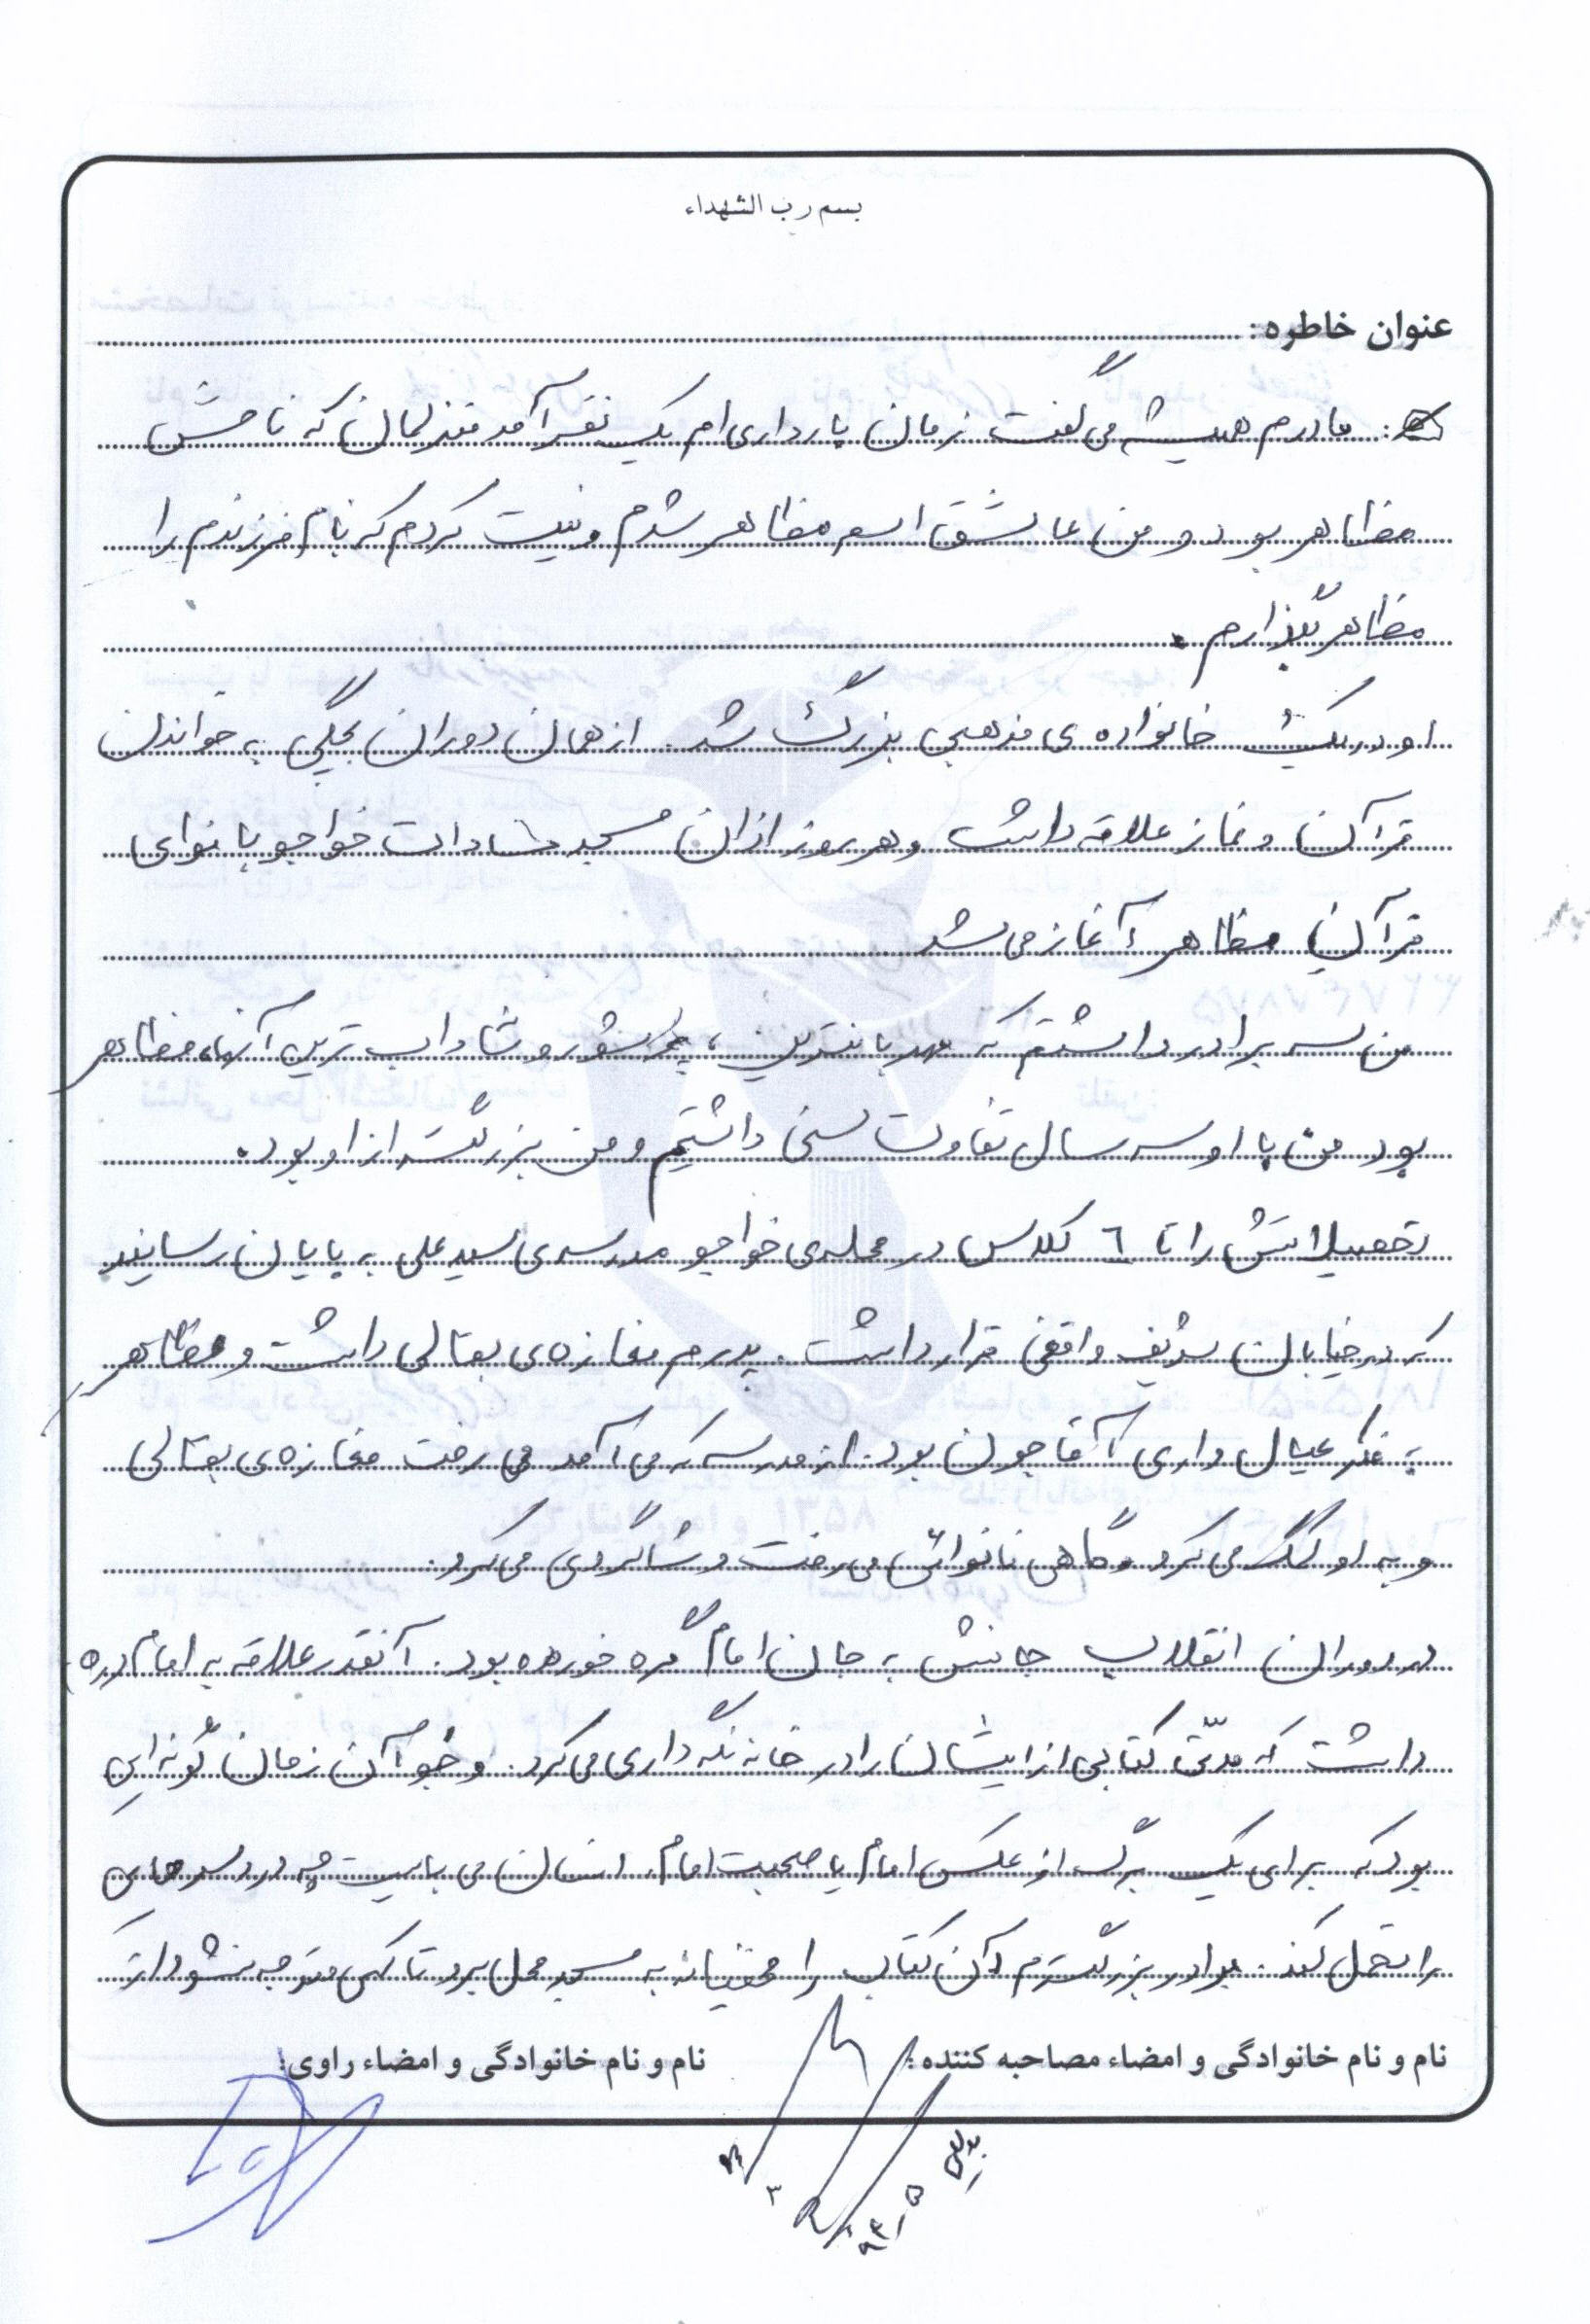 بسم رب الشهداء
عنوان خاطره:
مادرم همیشه می گفت زمان بارداری ام یک نفر آمد منزلمان که نامش
مظاهر بود و من عاشق اسم مظاهر شدم و نیت کردم که نام فرزندم را
مظاهر بگذارم.
او در یک خانواده ی مذهبی بزرگ شد. از همان دوران بچگی به خواندن
قرآن و نماز علاقه داشت و هر روز اذان مسجد سادات خواجو با نوای
قرآن مظاهر آغاز می شد
من سه برادر داشتم که مهربانترین، پرشور و شاداب ترین آنها، مظاهر
بود. من با او سه سال تفاوت سنی داشتیم و من بزرگتر از او بود.
تحصیلاتش را تا ٦ کلاس در محله ی خواجو مدرسه ی سید علی به پایان رسانید
که در خیابان شریف واقفی قرار داشت. پدرم مغازه ی بقالی داشت و مظاهر
به فکر عیال واری آقاجون بود. از مدرسه که می آمد می رفت مغازه ی بقالی
و به او کمک می کرد و گاهی نانوائی می رفت و شاگردی می کرد.
در دوران انقلاب جانش به جان امام گره خورده بود. آنقدر علاقه به امام (ره)
داشت که مدتی کتابی از ایشان را در خانه نگه داری می کرد. و جو آن زمان گونه ایی
بود که برای یک برگ از عکس امام یا صحبت امام، انسان می بایست چه دردسرهایی
را تحمل کند. برادر بزرگترم آن کتاب را مخفیانه به مسجد محل برد تا کسی متوجه نشود از
نام و نام خانوادگی و امضاء مصاحبه کننده:
نام و نام خانوادگی و امضاء راوی: